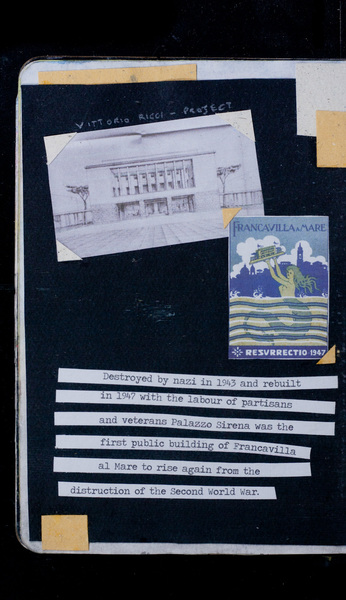 VITTORIO RICCI - PROJECT
FRANCAVILLA A MARE
RESVRRECTIO 1947
Destroyed by nazi in 1943 and rebuilt
in 1947 with the labour of partisans
and veterans Palazzo Sirena was the
first public building of Francavilla
al Mare to rise again from the
distruction of the Second World War.